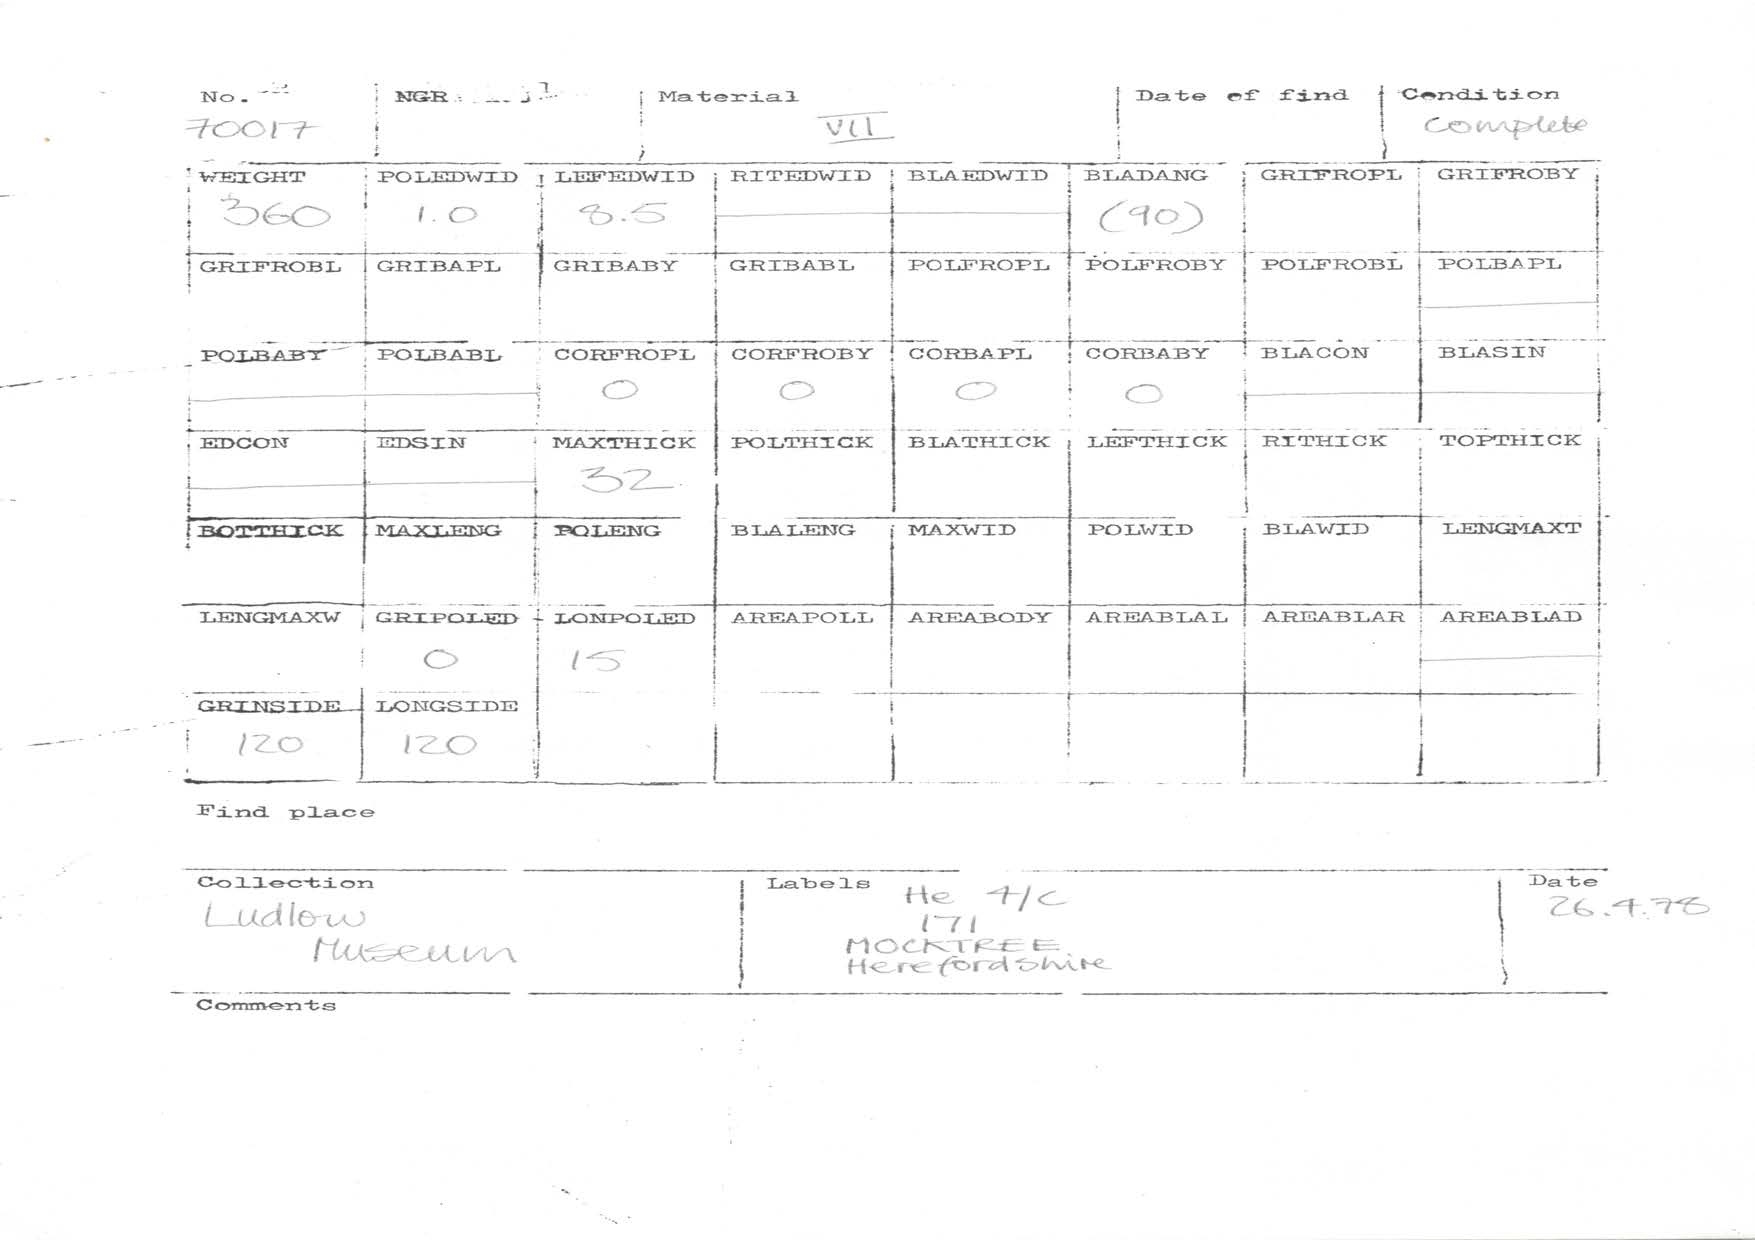 No. NGR Material Date of find Condition
70017 VII complete
WEIGHT POLEDWID LEFEDWID RITEDWID BLAEDWID BLADANG GRIFROPL GRIFROBY
360 1.0 8.5 (90)
GRIFROBL GRIBAPL GRIBABY GRIBABL POLFROPL POLFROBY POLFROBL POLBAPL
POLBABY POLBABL CORFROPL CORFROBY CORBAPL CORBABY BLACON BLASIN
0 0 0 0
EDCON EDSIN MAXTHICK POLTHICK BLATHICK LEFTHICK RITHICK TOPTHICK
32
BOTTHICK MAXLENG POLENG BLALENG MAXWID POLWID BLAWID LENGMAXT
LENGMAXW GRIPOLED LONPOLED AREAPOLL AREABODY AREABLAL AREABLAR AREABLAD
0 15
GRINSIDE LONGSIDE
120 120
Find place
Collection Labels Date
Ludlow He 4/c 26.4.78
Museum 171
MOCKTREE
Herefordshire
Comments